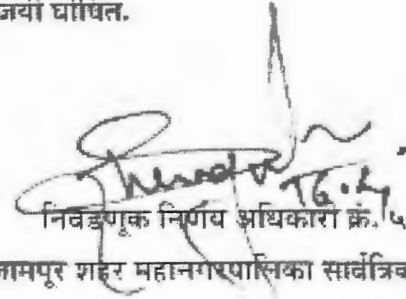 जयी घोषित.
निवडणूक निर्णय अधिकारी क्रं. ५
जामपूर शहर महानगरपालिका सार्वत्रिक